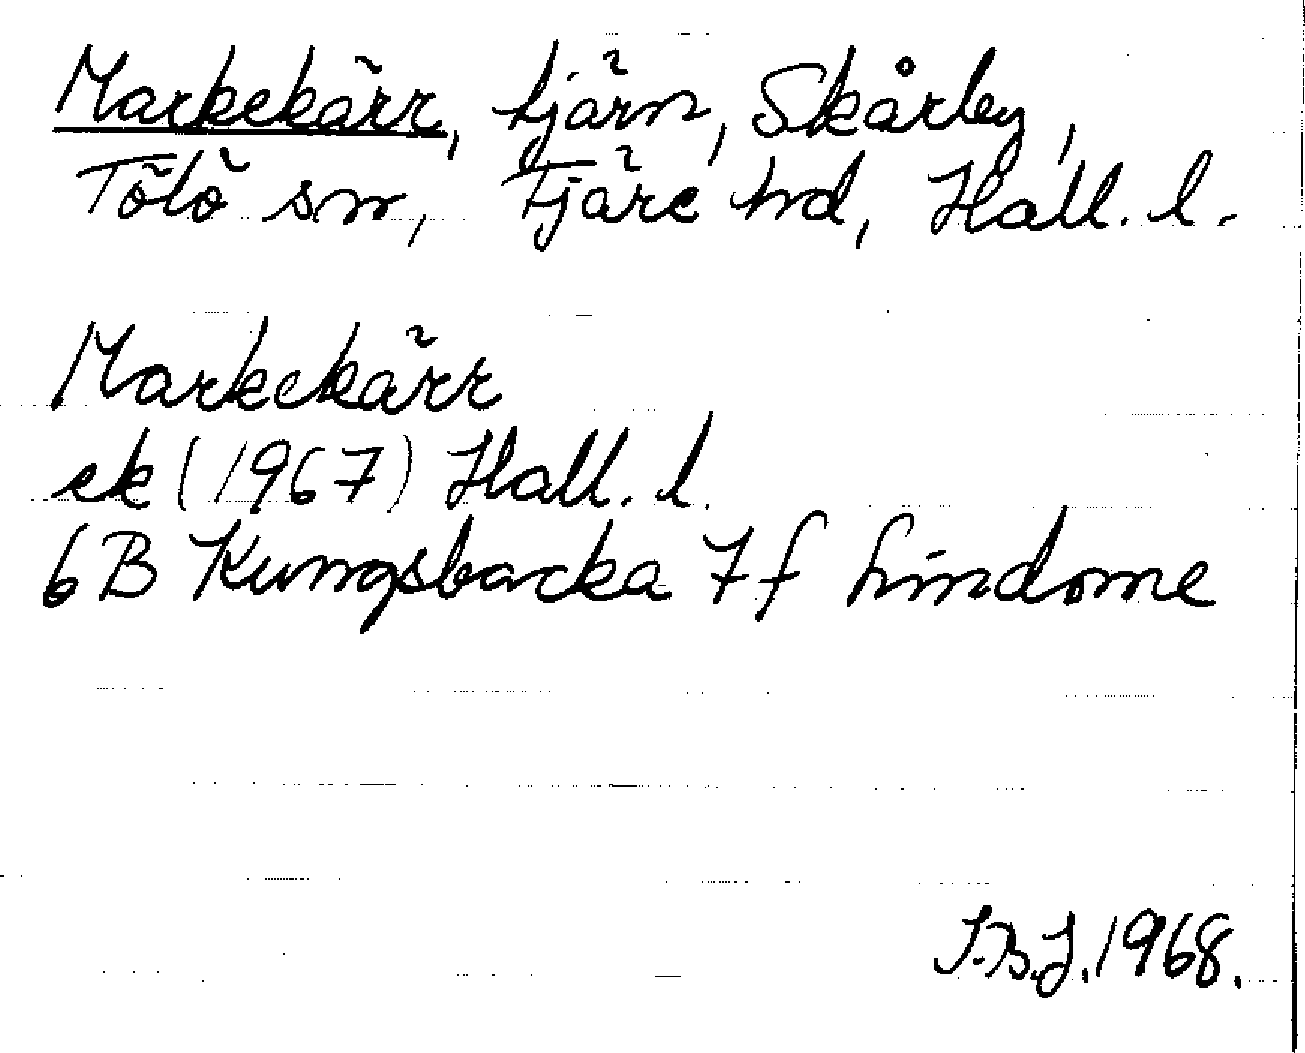 Markekärr, tjärn, Skårby,
Tölö sn, Fjäre hd, Hall. l.
Markekärr
ek (1967) Hall. l.
6B Kungsbacka 7f Lindome
I.B.J. 1968.